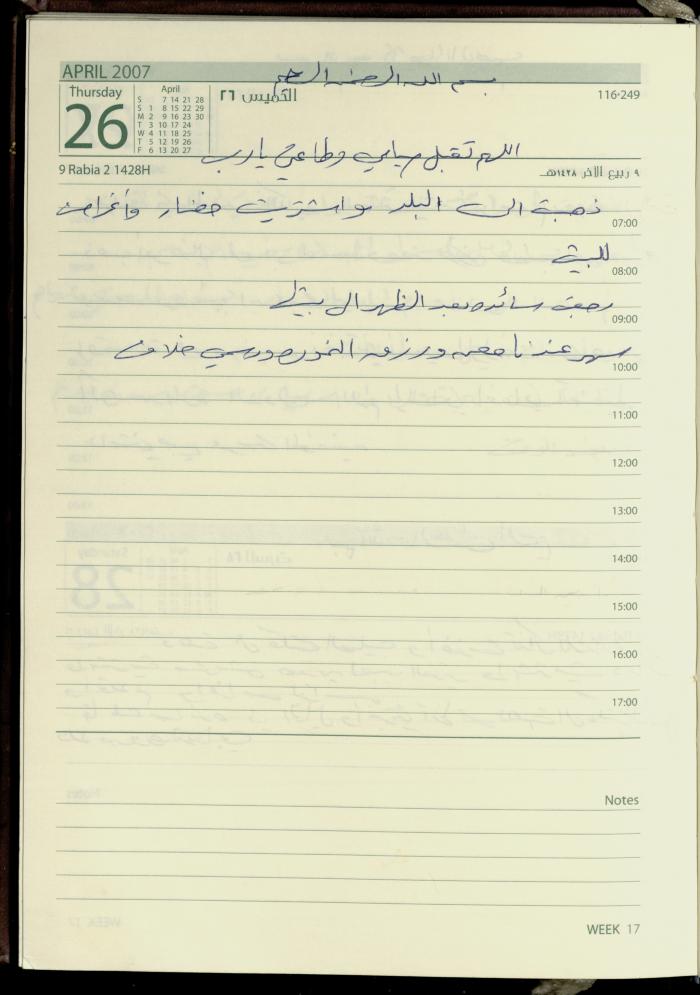 APRIL 2007
بسم الله الرحمن الرحيم
Thursday
26
April
S 7 14 21 28
S 1 8 15 22 29
M 2 9 16 23 30
T 3 10 17 24
W 4 11 18 25
T 5 12 19 26
F 6 13 20 27
الخميس ٢٦
116-249
اللهم تقبل صيامي وطاعتي يارب
9 Rabia 2 1428H
٩ ربيع الآخر ١٤٢٨هـ
ذهبت الى البلد واشتريت خضار وأغراض
07:00
للبيت
08:00
رجعت سائده بعد الظهر الى بيتها
09:00
سهر عندنا
10:00
11:00
12:00
13:00
14:00
15:00
16:00
17:00
Notes
WEEK 17